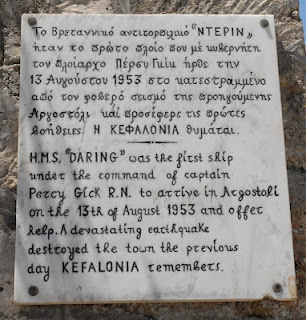 Το Βρεταννικό αντιτορπιλικό "ΝΤΕΡΙΝ"
ήταν το πρώτο πλοίο που με κυβερνήτη
τον πλοίαρχο Πέρσυ Γκικ ήρθε την
13 Αυγούστου 1953 στο κατεστραμμένο
από τον φοβερό σεισμό της προηγούμενης
Αργοστόλι και προσέφερε τις πρώτες
βοήθειες. Η ΚΕΦΑΛΟΝΙΑ θυμάται.
H.M.S. "DARING" was the first ship
under the command of captain
Percy Gick R.N. to arrive in Argostoli
on the 13th of August 1953 and offer
help. A devastating earthquake
destroyed the town the previous
day. KEFALONIA remembers.